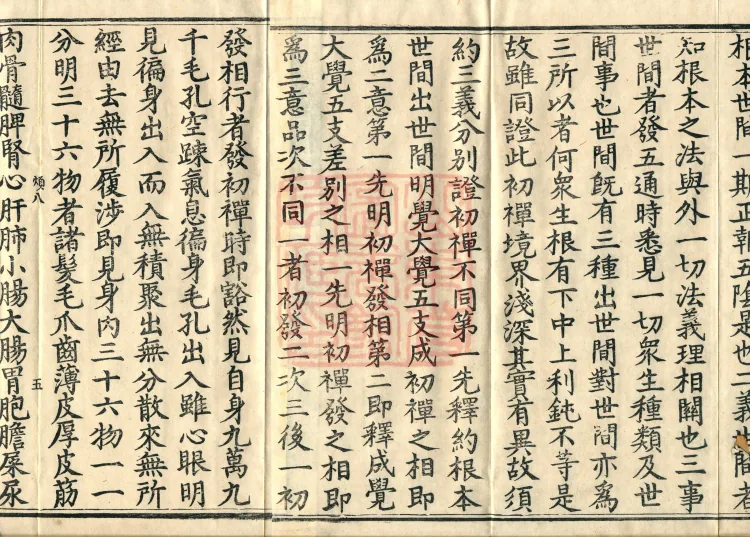 根本世間一期正報五陰是也二義世間者
知根本之法與外一切法義理相關也三事
世間者發五通時悉見一切眾生種類及世
間事也世間既有三種出世間對世間亦為
三所以者何眾生根有下中上利鈍不等是
故雖同證此初禪境界淺深其實有異故須
約三義分別證初禪不同第一先釋約根本
世間出世間明覺大覺五支成初禪之相即
為二意第一先明初禪發相第二即釋成覺
大覺五支差別之相一先明初禪發之相即
為三意品次不同一者初發二次三後一初
發相行者發初禪時即豁然見自身九萬九
千毛孔空踈氣息徧身毛孔出入雖心眼明
見徧身出入而入無積聚出無分散來無所
經由去無所履涉即見身內三十六物一一
分明三十六物者諸髮毛爪齒薄皮厚皮筋
肉骨髓脾腎心肝肺小腸大腸胃胞膽屎尿
五